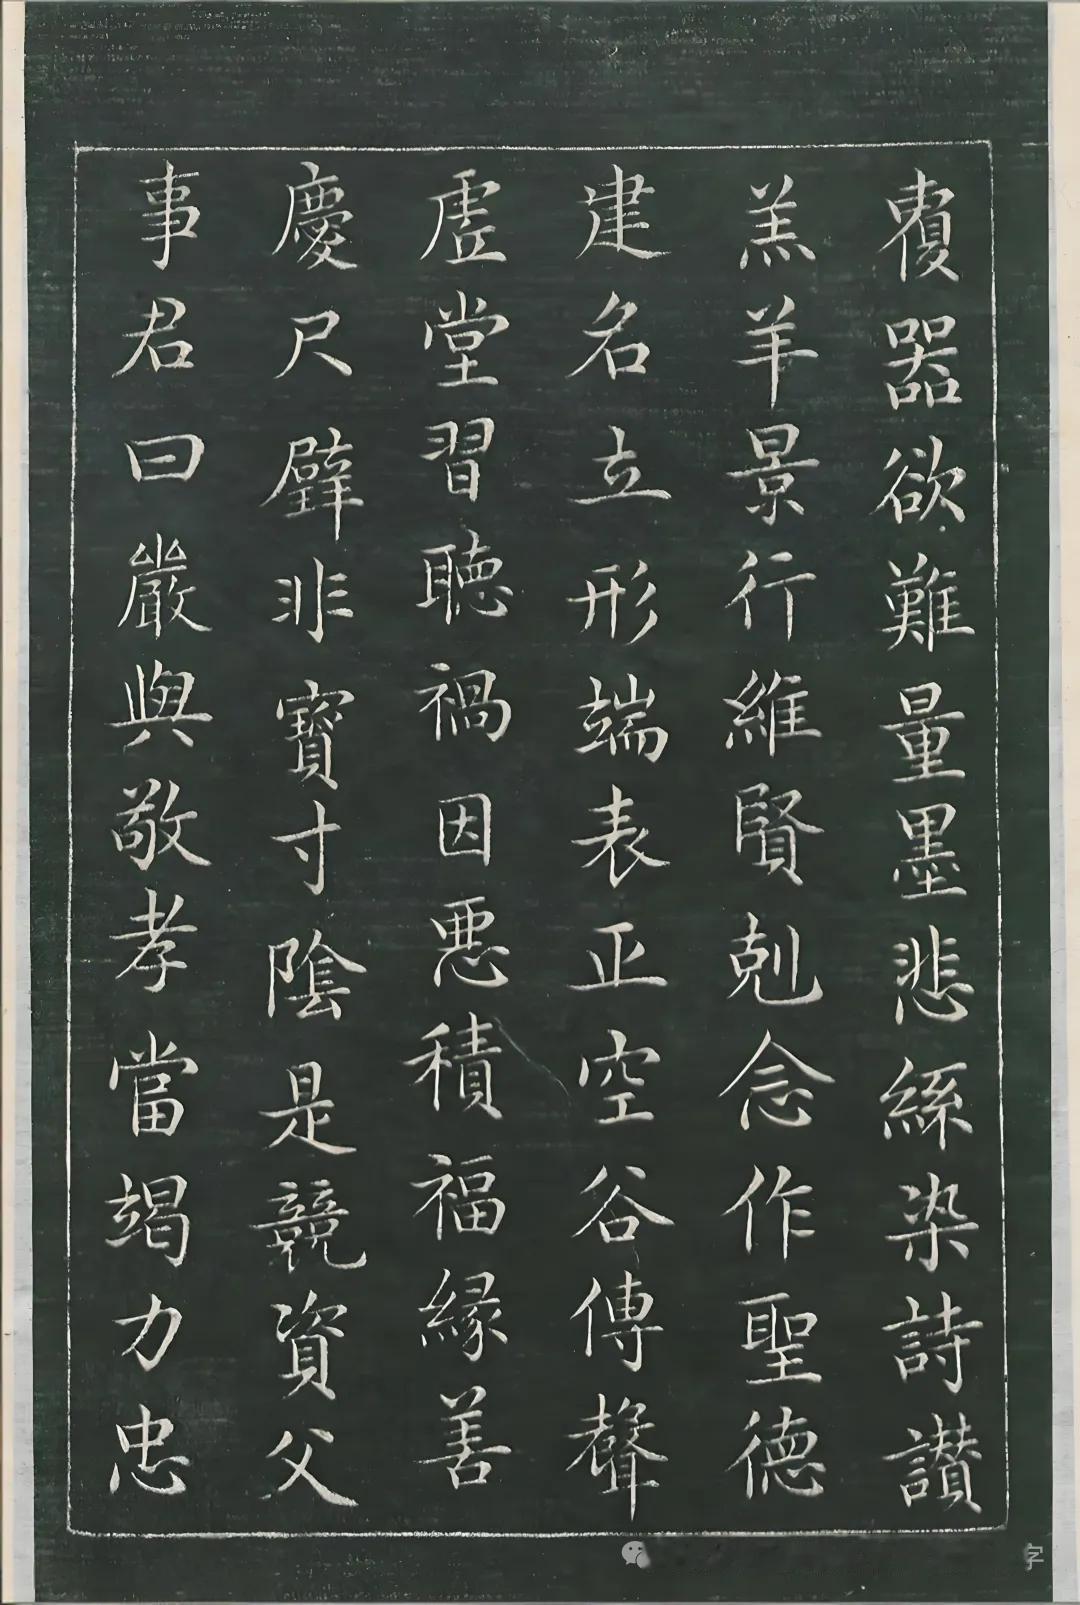 覆器欲難量墨悲絲染詩讃
羔羊景行維賢剋念作聖德
建名立形端表正空谷傳聲
虛堂習聽禍因惡積福緣善
慶尺璧非寶寸陰是競資父
事君曰嚴與敬孝當竭力忠
字